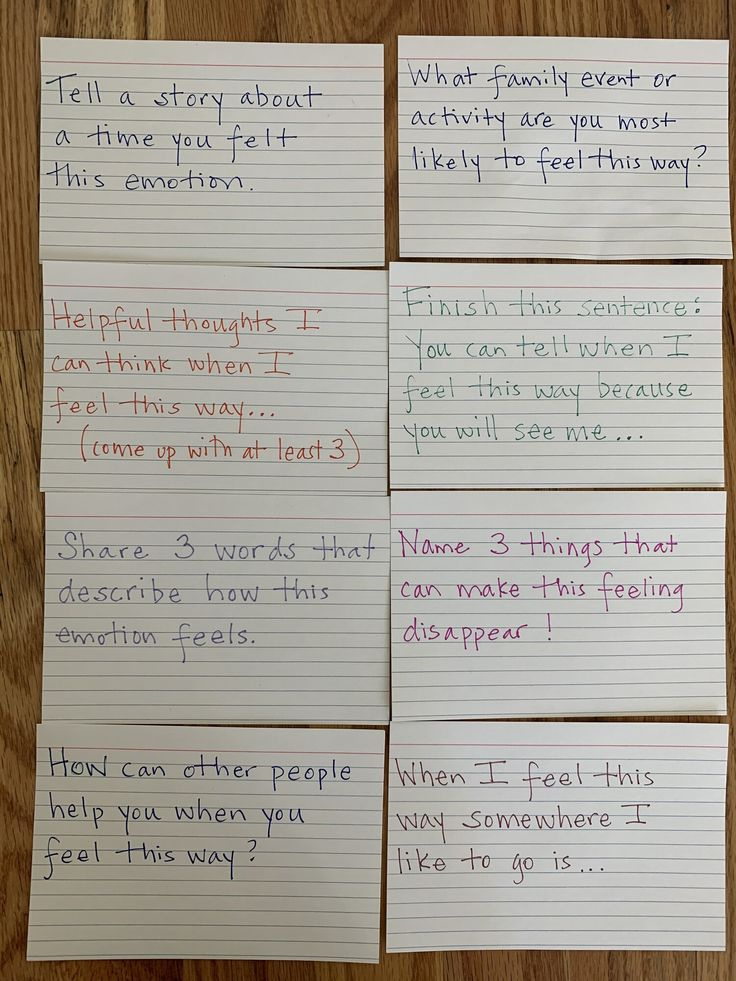 Tell a story about
a time you felt
this emotion.
What family event or
activity are you most
likely to feel this way?
Helpful thoughts I
can think when I
feel this way...
(come up with at least 3)
Finish this sentence:
You can tell when I
feel this way because
you will see me...
Share 3 words that
describe how this
emotion feels.
Name 3 things that
can make this feeling
disappear!
How can other people
help you when you
feel this way?
When I feel this
way somewhere I
like to go is...